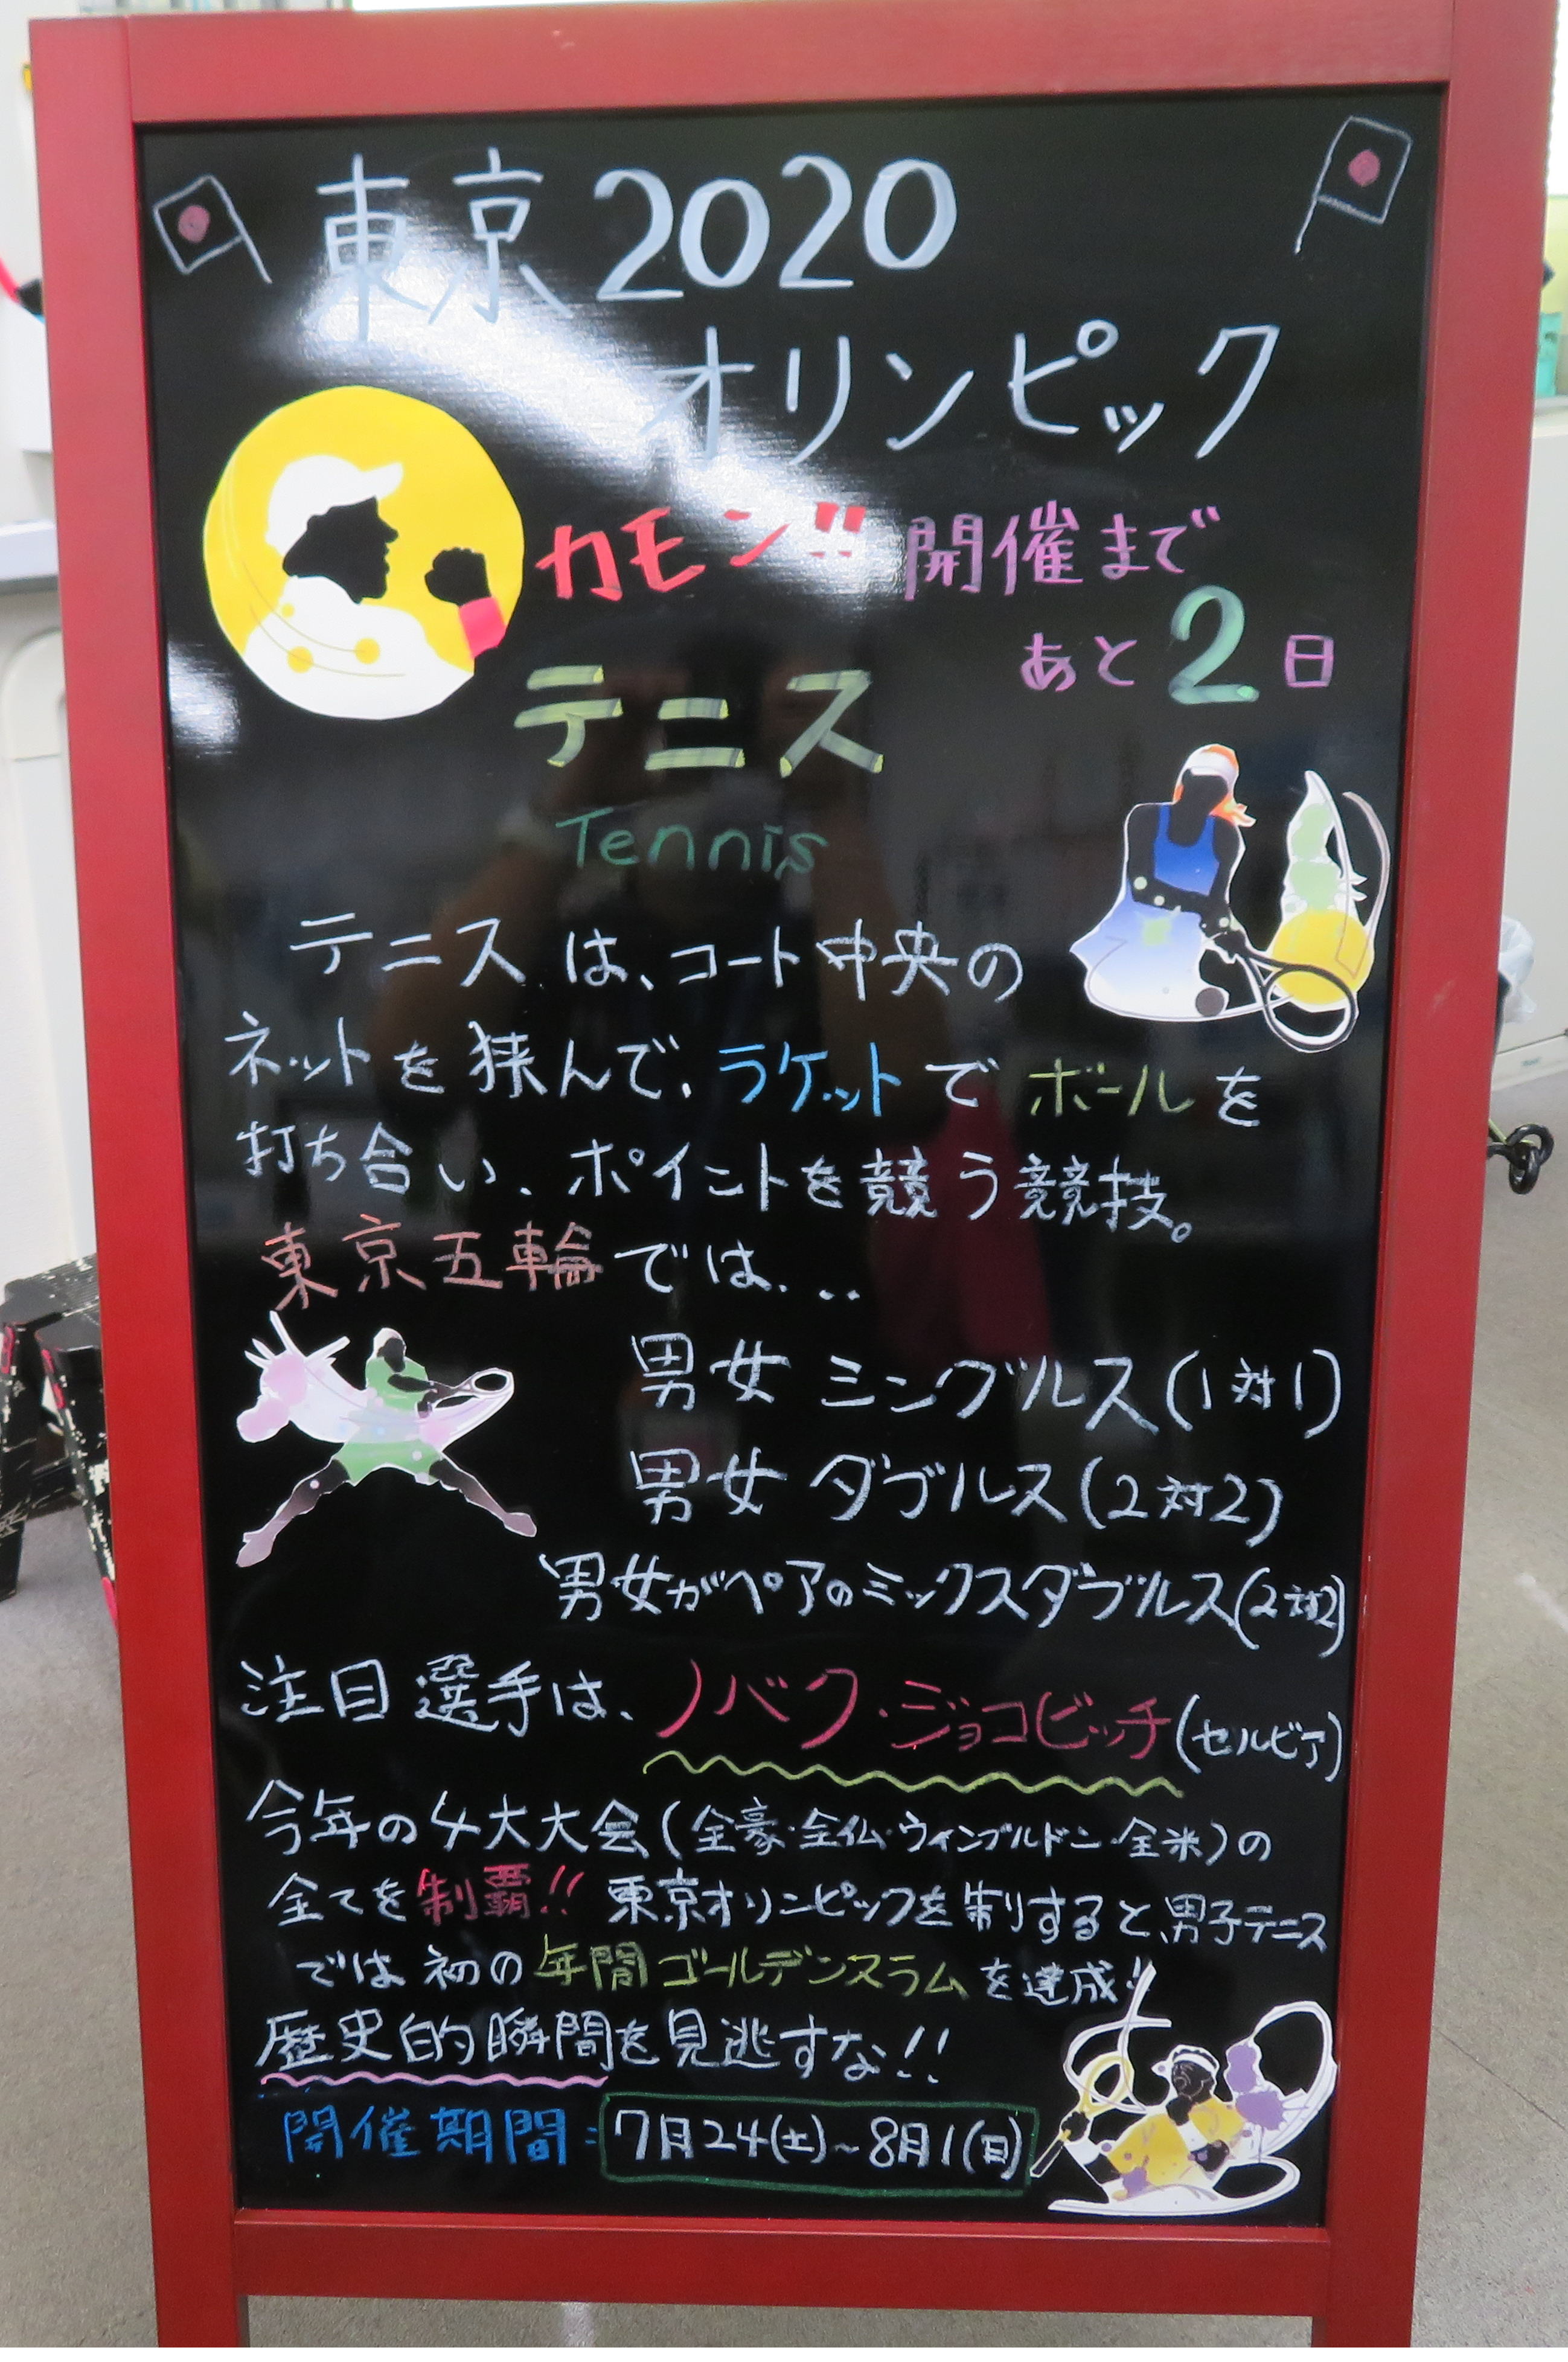 東京2020
オリンピック
カモン!! 開催まで
あと2日
テニス
Tennis
テニスは、コート中央の
ネットを挟んで、ラケットでボールを
打ち合い、ポイントを競う競技。
東京五輪では...
男女 シングルス(1対1)
男女 ダブルス(2対2)
男女がペアのミックスダブルス(2対2)
注目選手は、ノバク・ジョコビッチ(セルビア)
今年の4大大会(全豪・全仏・ウィンブルドン・全米)の
全てを制覇!! 東京オリンピックを制すると、男子テニス
では初の年間ゴールデンスラムを達成!!
歴史的瞬間を見逃すな!!
開催期間:7月24(土)~8月1(日)